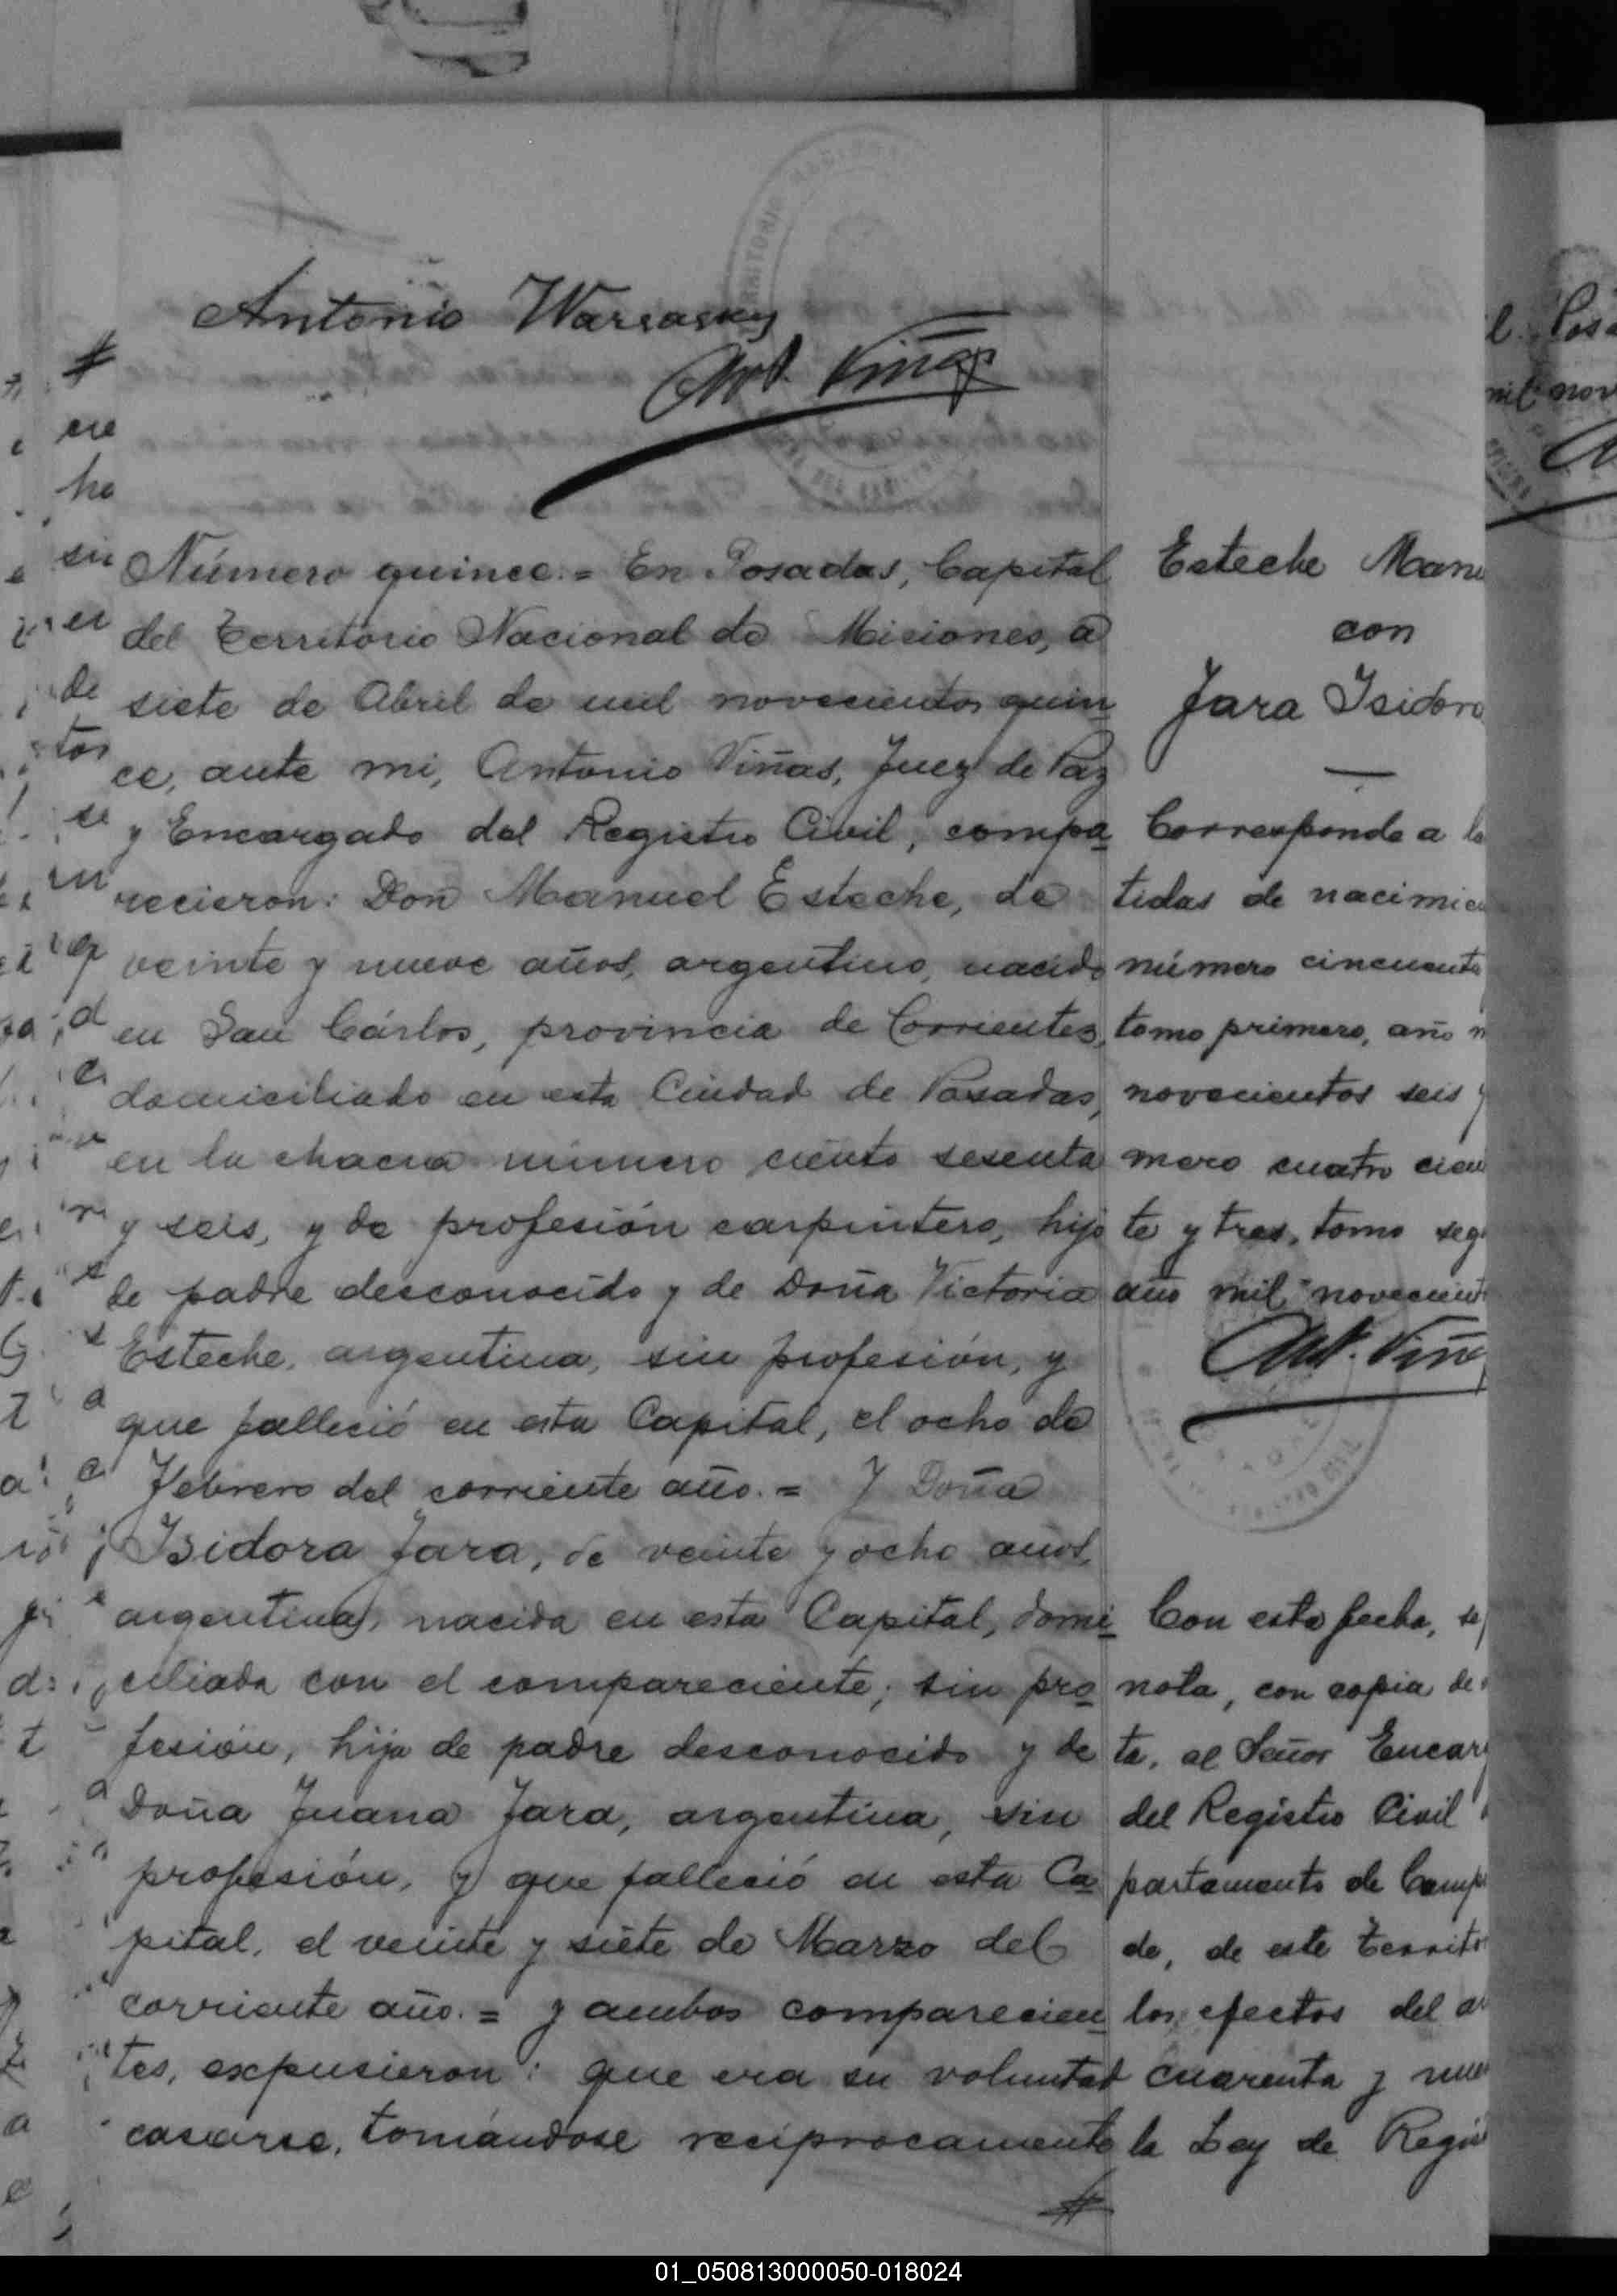 Antonio Warsasky
Ant. Viñas
Número quince. = En Posadas, Capital
del Territorio Nacional de Misiones, a
siete de Abril de mil novecientos quin
ce, ante mi, Antonio Viñas, Juez de Paz
y Encargado del Registro Civil, compa
recieron: Don Manuel Esteche, de
veinte y nueve años, argentino, nacido
en San Cárlos, provincia de Corrientes,
domiciliado en esta Ciudad de Posadas,
en la chacra número ciento sesenta
y seis, y de profesión carpintero, hijo
de padre desconocido y de Doña Victoria
Esteche, argentina, sin profesión, y
que falleció en esta Capital, el ocho de
Febrero del corriente año. = Y Doña
Isidora Jara, de veinte y ocho años,
argentina, nacida en esta Capital, domi
ciliada con el compareciente, sin pro
fesión, hija de padre desconocido y de
Doña Juana Jara, argentina, sin
profesión, y que falleció en esta Ca
pital, el veinte y siete de Marzo del
corriente año. = y ambos comparecien
tes, expusieron: que era su voluntad
casarse, tomándose reciprocamente
Esteche Manu
con
Jara Isidora
Corresponde a la
tidas de nacimien
número cincuenta
tomo primero, año m
novecientos seis y
mero cuatro cien
te y tres, tomo seg
año mil novecient
Ant. Viña
Con esta fecha, se
nota, con copia de
ta, al Señor Encarg
del Registro Civil
partamento de Camp
do, de este Territo
los efectos del ar
cuarenta y nue
la Ley de Regis
01_050813000050-018024